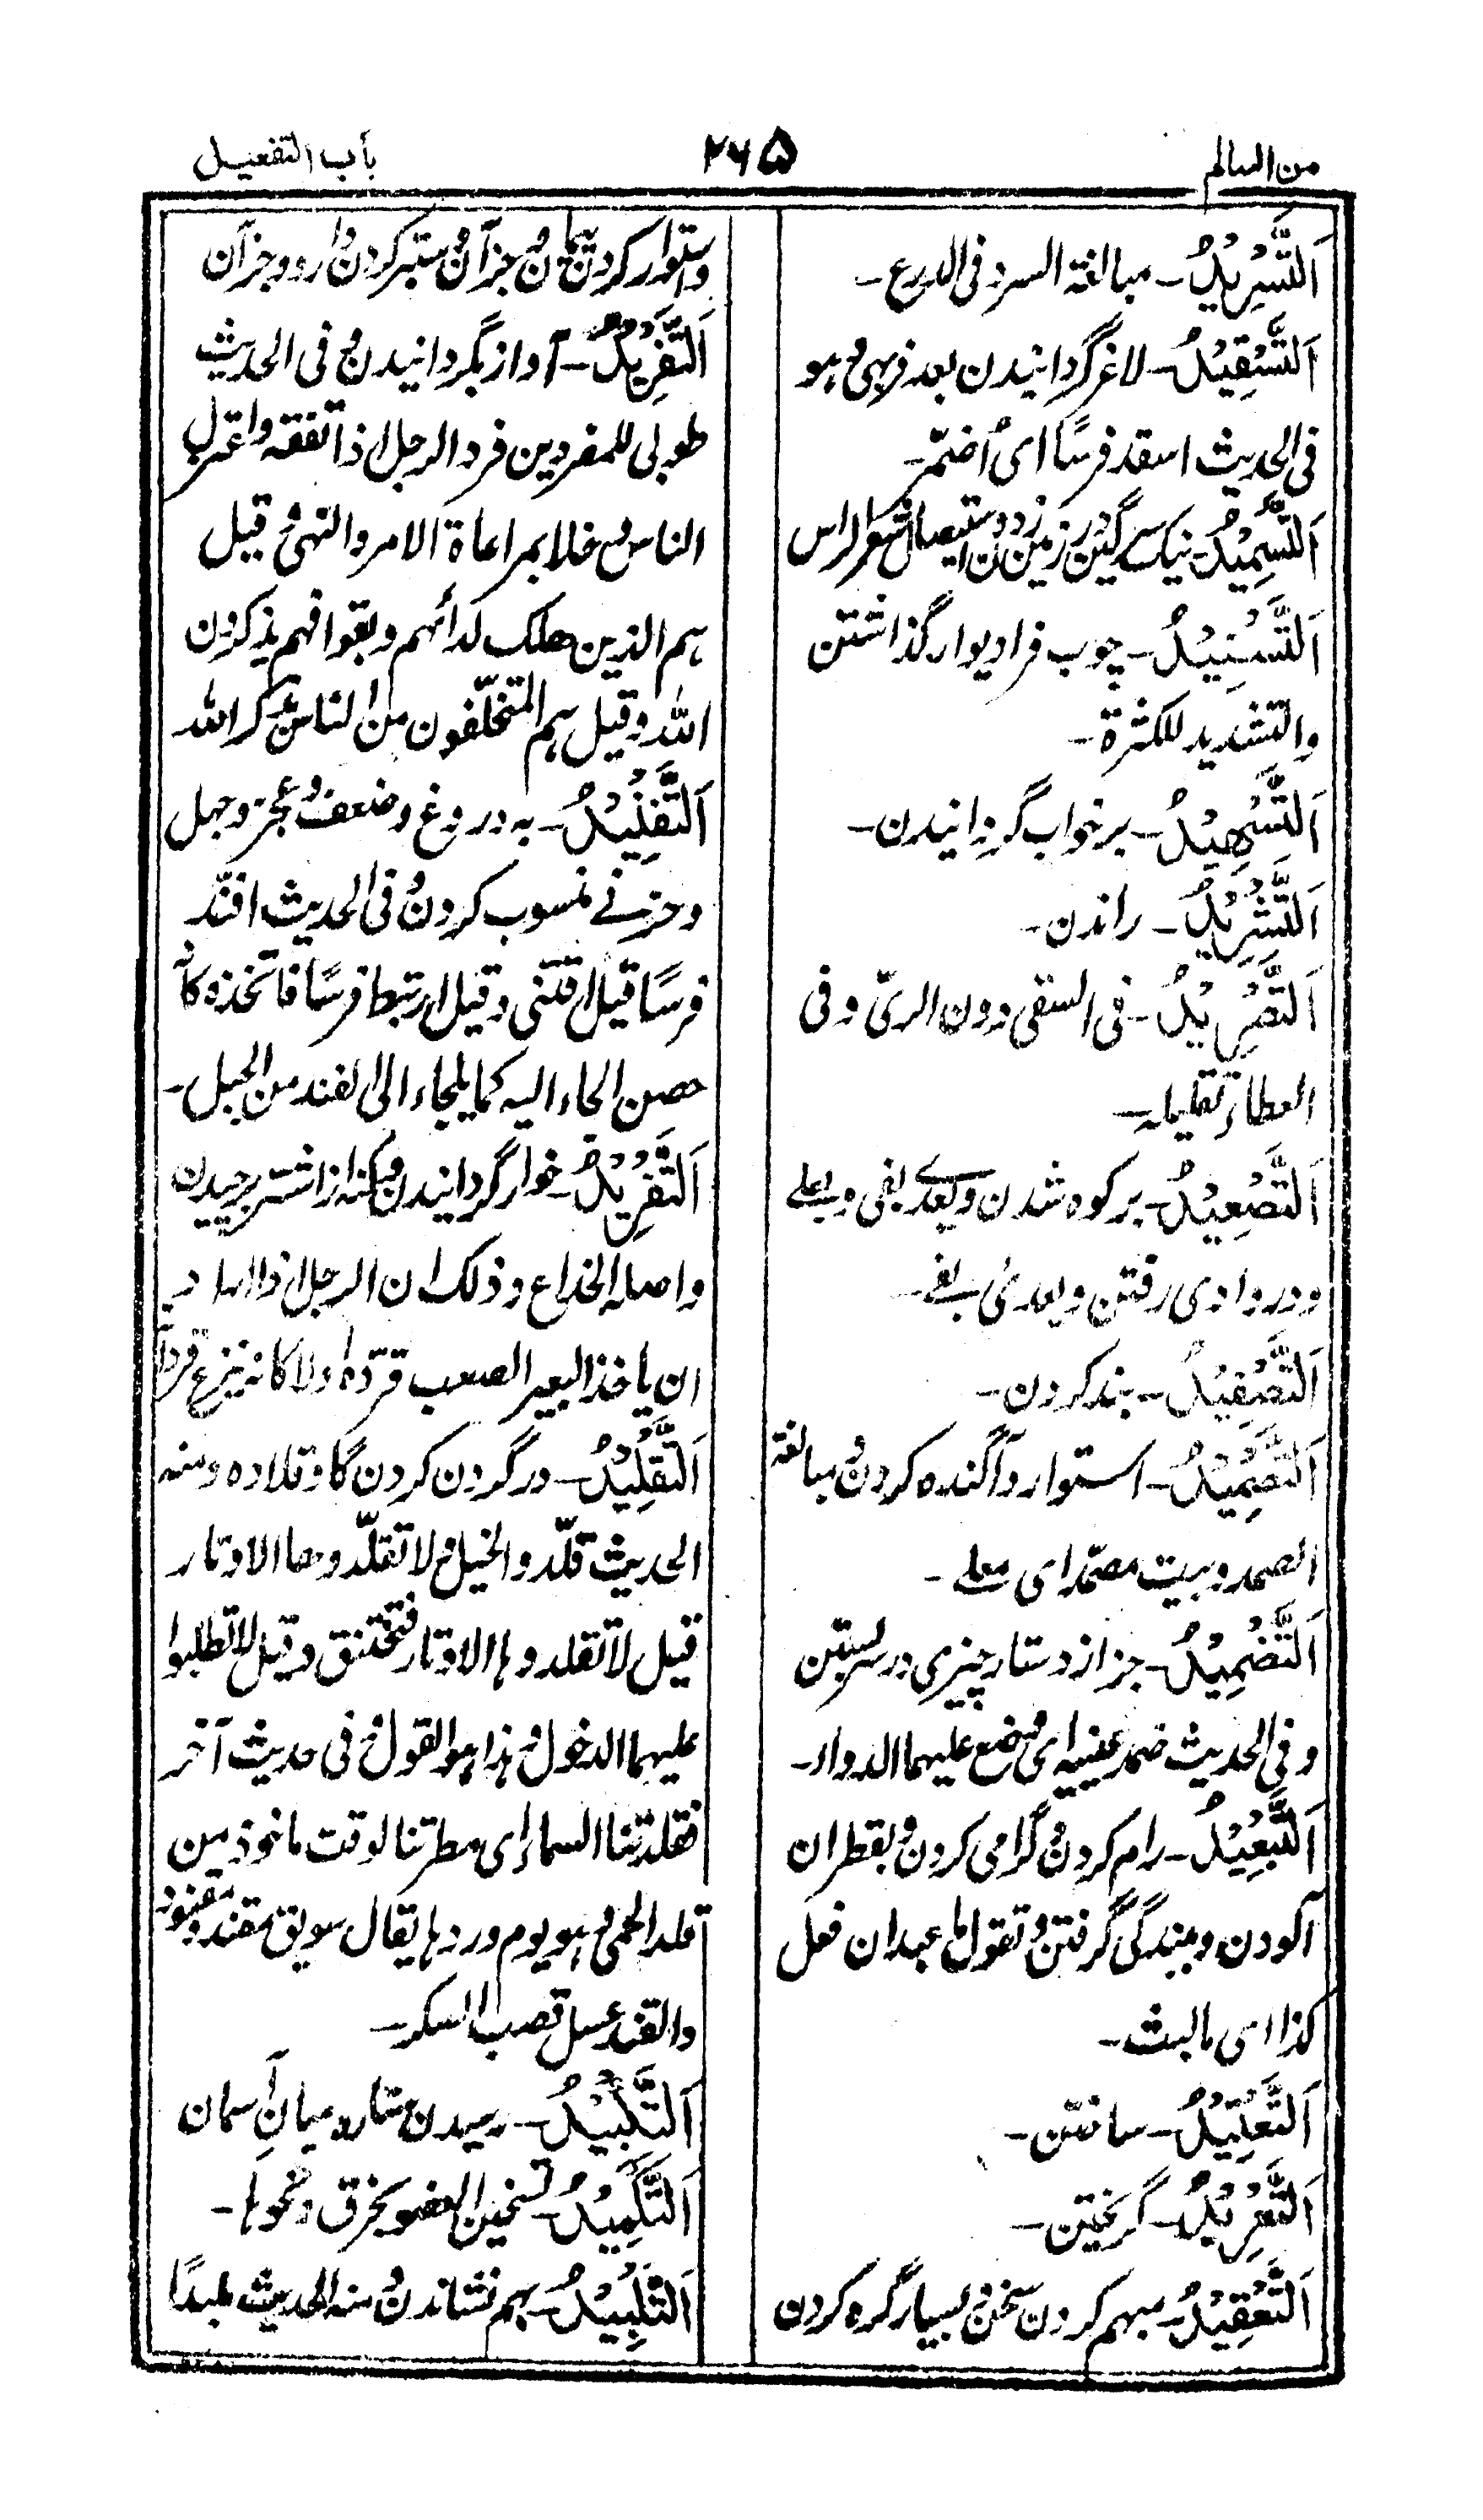 من السالم
٢٦٥
باب التفعیل
اَلتَّسْرِیْدُ۔ مبالغة السرد فی الدرع۔
اَلتَّسْقِیْدُ۔ لاغر گردانیدن بعد فربہی و ہو
فی الحدیث اسقد فرسًا ای اُضمّر۔
اَلتَّسْمِیْدُ۔ نیک سرگین در زمین زدن و استیصال شعر الراس
اَلتَّسْنِیْدُ۔ چوب فرا دیوار گذاشتن
والتشدید للکثرة۔
اَلتَّسْهِیْدُ۔ برخواب گردانیدن۔
اَلتَّشْرِیْدُ۔ راندن۔
اَلتَّصْرِیْدُ۔ فی السقی دون الریّ و فی
العطاء تقلیله۔
اَلتَّصْعِیْدُ۔ برکوه شدن و یعدی بفی و بعلے
و در وادی رفتن و یعدیٰ بفے۔
اَلتَّصْفِیْدُ۔ بند کردن۔
اَلتَّصْمِیْدُ۔ استوار و آگنده کردن و مبالغة
الصمد و بیت مصمّد ای معلے۔
اَلتَّضْمِیْدُ۔ جز از دستار چیزی در سر بستن
و فی الحدیث ضمد عینیه ای وضع علیهما الدواء۔
اَلتَّعْبِیْدُ۔ رام کردن و گرامی کردن و بقطران
آلودن و ببندگی گرفتن و تقول ما عبد ان فعل
کذا ای ما لبث۔
اَلتَّعْتِیْدُ۔ ساختن۔
اَلتَّعْرِیْدُ۔ گریختن۔
اَلتَّعْقِیْدُ۔ مبهم کردن سخن و بسیار گره کردن
و استوار کردن پیمان و جز آن و ستبر کردن دارو و جز آن
اَلتَّغْرِیْدُ۔ آواز بگردانیدن و فی الحدیث
طوبی للمفردین فرد الرجل اذا تفقه و اعتزل
الناس و خلا بمراعاة الامر والنهی و قیل
ہم الذین هلک لدائهم و بقوا فہم یذکرون
الله و قیل ہم المتخلّفون من الناس بذکر الله
اَلتَّفْنِیْدُ۔ به دروغ و ضعف و عجز و جهل
و خرفے منسوب کردن و فی الحدیث افنّد
فرسًا قیل اقتنی و قیل ارتبط فرسًا فاتخذه کانه
حصن الجاء الیه کما یلجاء الی الفند من الجبل۔
اَلتَّقْرِیْدُ۔ خوار گردانیدن و کنه از اشتر برچیدن
و اصله الخداع و ذلک ان الرجل اذا اراد
ان یاخذ البعیر الصعب قرّده اولا کانه ینزع قردا
اَلتَّقْلِیْدُ۔ در گردن کردن گاو قلاده و منه
الحدیث قلّدوا الخیل و لا تقلّدوها الاوتار
قیل لا تقلدوها الاوتار فتختنق و قیل لا تطلبوا
علیهما الدخول و هذا هو القول و فی حدیث آخر
فقلدتنا السماء ای مطرتنا لوقت ماخوذ من
قلد الحمی و هو یوم وردها یقال سویق مقند و مقنود
والقند عسل قصب السکر۔
اَلتَّکْبِیْدُ۔ رسیدن ستاره میانِ آسمان
اَلتَّکْمِیْدُ۔ تسخین العضو بخرق و نحوها۔
اَلتَّلْبِیْدُ۔ بهم نشاندن و منه الحدیث ملبدًا